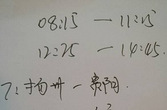 08:15 — 11:15
12:25 — 14:45.
7: 扬州 — 贵阳